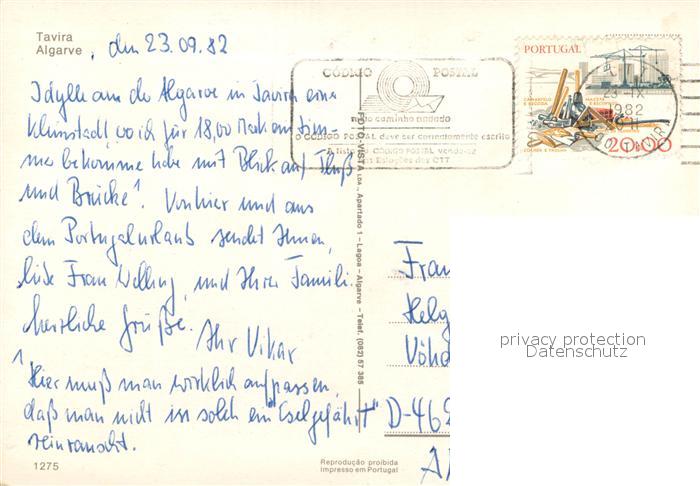 Tavira
Algarve, den 23.09.82
Idylle an der Algarve in Tavira eine
Kleinstadt, wo ich für 18,00 Mark ein Zim-
mer bekommen habe mit Blick auf Fluß
und Brücke¹. Von hier und aus
dem Portugalurlaub sendet Ihnen,
liebe Frau Welling, und Ihrer Familie
herzliche Grüße. Ihr Vikar
¹ Hier muß man wirklich aufpassen,
daß man nicht in solch ein "Eselgefährt"
reinrauscht.
1275
CÓDIGO POSTAL
meio caminho andado
O CÓDIGO POSTAL deve ser correctamente escrito
A lista do CÓDIGO POSTAL vende-se
nas Estações dos CTT
PORTUGAL
1982
20$00
FOTO-VISTA LDA. - Apartado 1 - Lagoa - Algarve - Telef. (082) 57 385
Frau
Helg
Vöhd
D-462
Reprodução proibida
Impresso em Portugal
privacy protection
Datenschutz